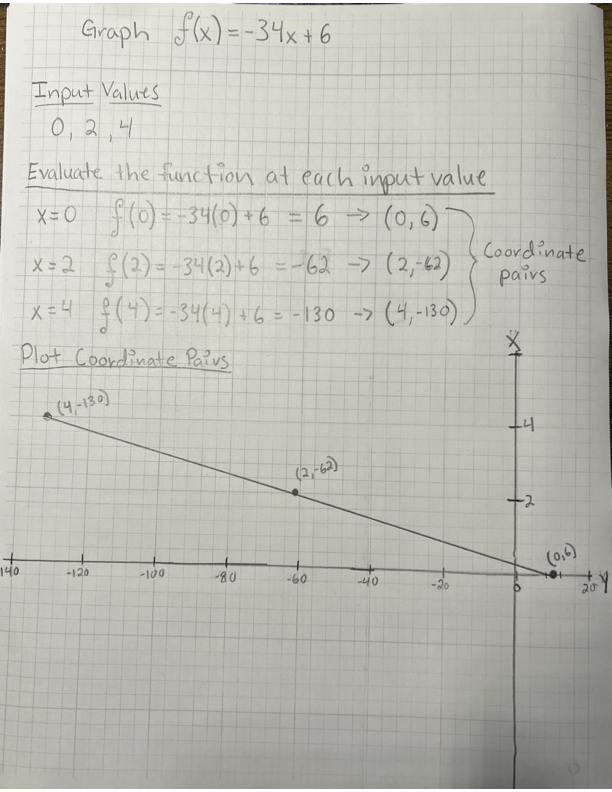 Graph f(x) = -34x + 6
Input Values
0, 2, 4
Evaluate the function at each input value
x=0 f(0) = -34(0) + 6 = 6 → (0,6)
x=2 f(2) = -34(2)+6 = -62 → (2,-62)
x=4 f(4) = -34(4) + 6 = -130 → (4,-130)
Coordinate
pairs
Plot Coordinate Pairs
X
(4,-130)
4
(2,-62)
2
(0,6)
140 -120 -100 -80 -60 -40 -20 0 20 Y